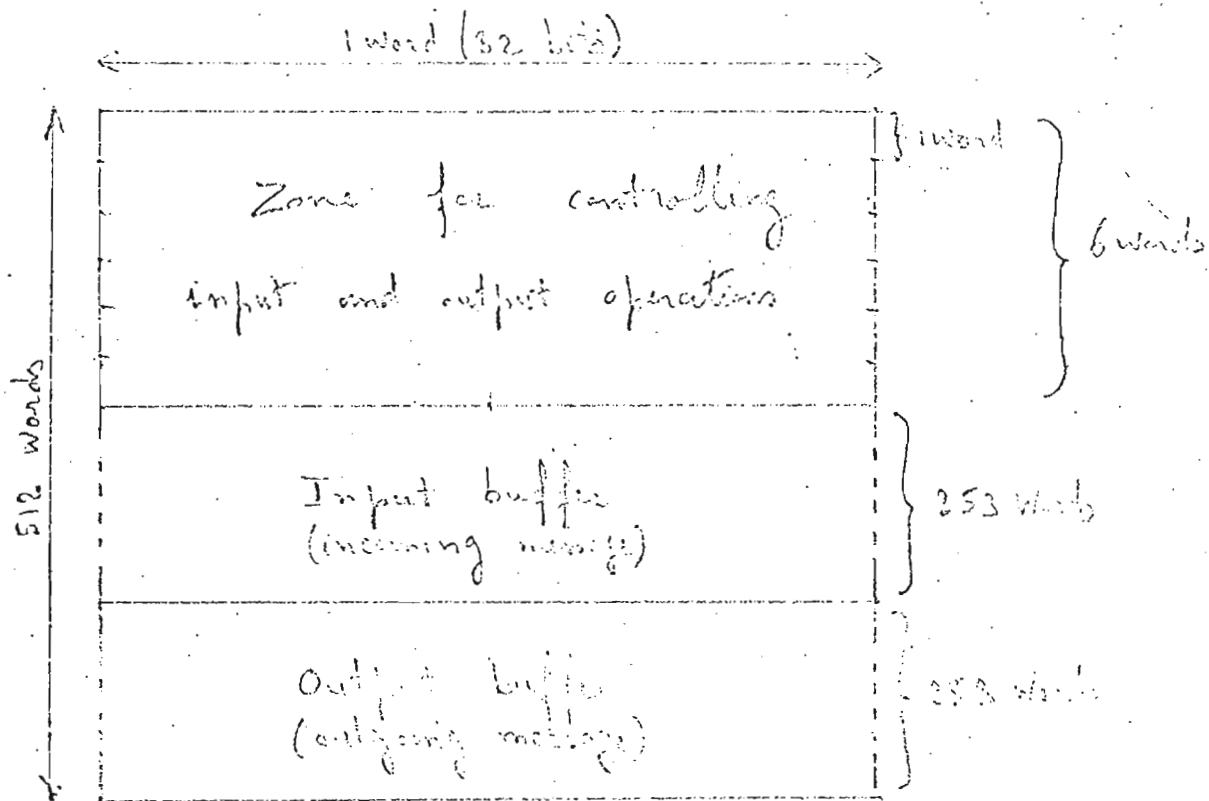 1 word (32 bits)
} 1 word
6 words
Zone for controlling
input and output operations
512 words
Input buffer
(incoming message)
253 words
Output buffer
(outgoing message)
253 words